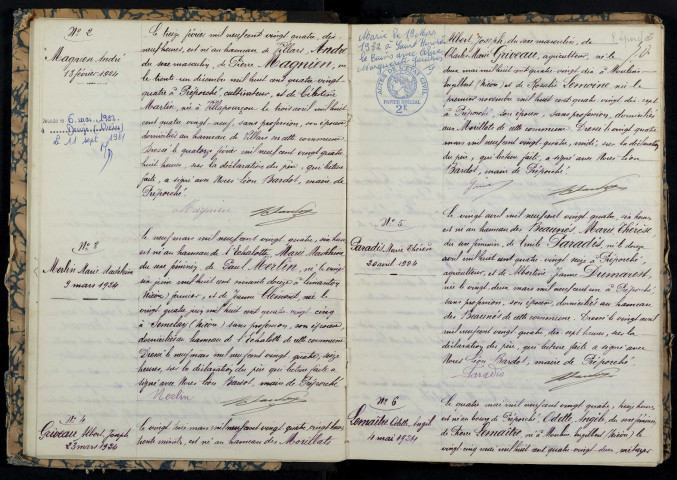 N° 2
Magnien André
13 février 1924
Le treize février mil neuf cent vingt quatre, dix
neuf heures, est né au hameau de Villars André
du sexe masculin, de Pierre Magnien, né
le trente un décembre mil huit cent quatre vingt
quatre à Préporché, cultivateur, et de Célestine
Martin, née à Villapourçon, le trois avril mil huit
cent quatre vingt neuf, sans profession, son épouse
domiciliés au hameau de Villars en cette commune
Dressé le quatorze février mil neuf cent vingt quatre
huit heures, sur la déclaration du père, qui lecture
faite, a signé avec Nous Léon Bardot, maire de
Préporché.
Magnien
N° 3
Merlin Marie Madeleine
9 mars 1924
Le neuf mars mil neuf cent vingt quatre, six heures
est née au hameau de l'Echalotte, Marie Madeleine
du sexe féminin, de Paul Merlin, né le vingt
six juin mil huit cent quatre
(Nièvre) et de Jeanne Clément née le
vingt quatre mil huit cent quatre vingt cinq
à Semelay (Nièvre) sans profession, son épouse
domiciliés au hameau de l'Echalotte de cette commune
Dressé le neuf mars mil neuf cent vingt quatre, seize
heures, sur la déclaration du père qui lecture faite a
signé avec Nous Léon Bardot, maire de Préporché
Merlin
N° 4
Griveau Albert, Joseph
23 mars 1924
Le vingt trois mars mil neuf cent vingt quatre vingt deux
heures trente minutes, est né au hameau des Morillats
Albert, Joseph, du sexe masculin, de
Charles Marie Griveau, agriculteur, né le
deux mai mil huit cent quatre vingt dix à Moulins
Engilbert (Nièvre) et de Lemoine née le
premier novembre mil huit cent quatre vingt dix sept
à Préporché, son épouse, sans profession, domiciliés
aux Morillats de cette commune. Dressé le vingt quatre
mars mil neuf cent vingt quatre, midi, sur la déclaration
du père, qui lecture faite, a signé avec Nous Léon
Bardot, maire de Préporché.
N° 5
Paradis Marie Thérèse
20 avril 1924
Le vingt avril mil neuf cent vingt quatre, six heures
est née au hameau des Beaunés Marie Thérèse
du sexe féminin, de Emile Paradis, né le douze
avril mil huit cent quatre vingt seize à Préporché
agriculteur, et de Albertine Jeanne Dumarest
née le vingt deux mars mil neuf cent un à Préporché,
sans profession, son épouse, domiciliés au hameau
des Beaunés de cette commune. Dressé le vingt avril
mil neuf cent vingt quatre dix sept heures, sur la
déclaration du père, qui lecture faite a signé avec
Nous Léon Bardot, maire de Préporché.
Paradis
N° 6
Lemaître Odette Angèle
4 mai 1924
Le quatre mai mil neuf cent vingt quatre, treize heures
est née au bourg de Préporché, Odette, Angèle, du sexe féminin
de Pierre Lemaître, né à Moulins Engilbert (Nièvre) le
vingt cinq mai mil huit cent quatre vingt deux, métayer